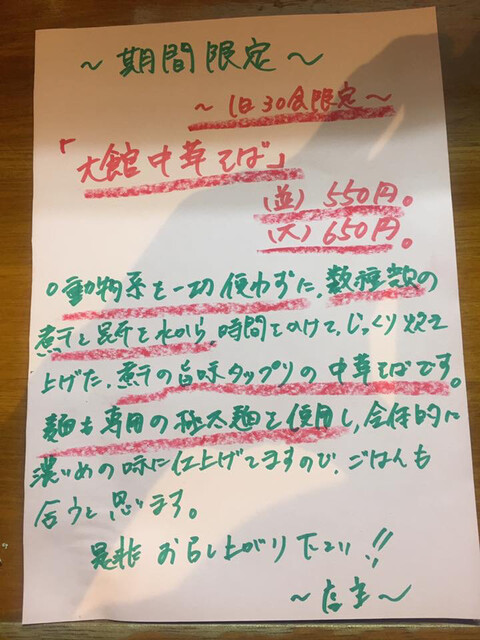 ～期間限定～
～1日30食限定～
「大館中華そば」
(並) 550円。
(大) 650円。
○動物系を一切使わずに、数種類の
煮干と昆布を水から、時間をかけて、じっくり炊き
上げた、煮干の旨味タップリの中華そばです。
麺も専用の極太麺を使用し、全体的に
濃いめの味に仕上げてますので、ごはんも
合うと思います。
是非お召し上がり下さい!!
～店主～